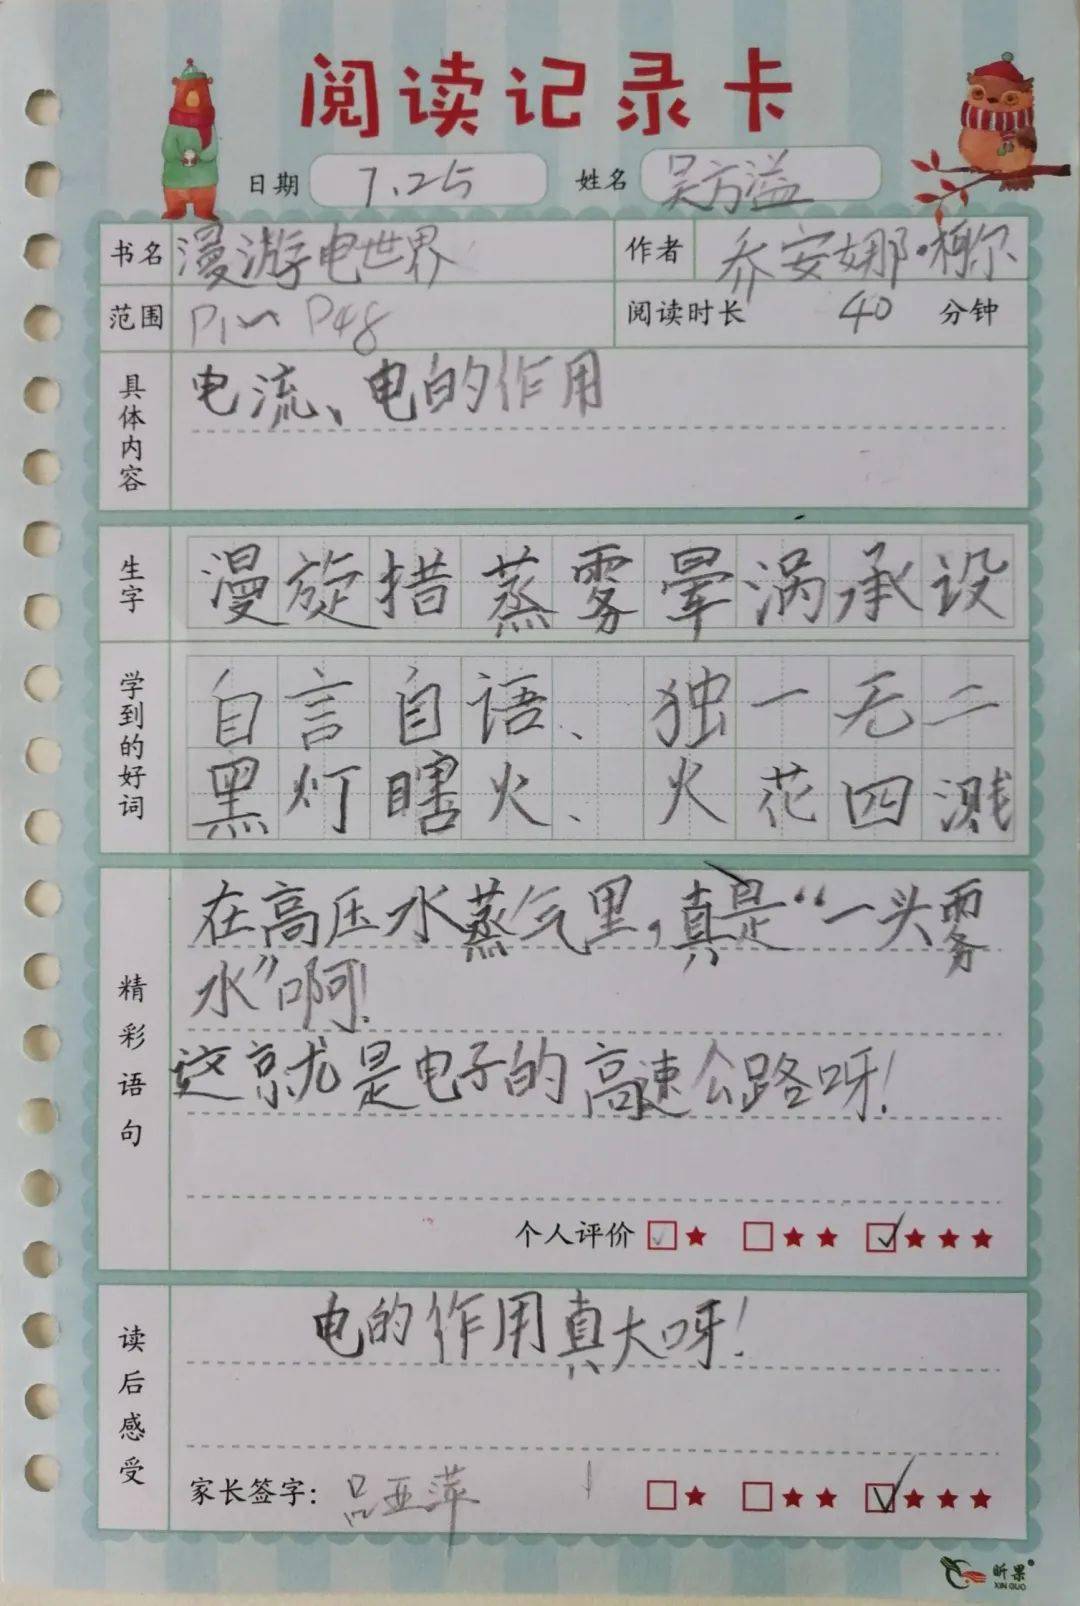 阅读记录卡
日期 7.25 姓名 吴方溢
书名 漫游电世界 作者 乔安娜·柯尔
范围 P1~P48 阅读时长 40 分钟
具体内容 电流、电的作用
生字 漫旋措蒸雾晕涡承设
学到的好词 自言自语、独一无二
黑灯瞎火、火花四溅
精彩语句 在高压水蒸气里,真是“一头雾
水”啊!
这就是电子的高速公路呀!
个人评价 □★ □★★ ☑★★★
读后感受 电的作用真大呀!
家长签字: 吕亚萍 □★ □★★ ☑★★★
昕果
XIN GUO